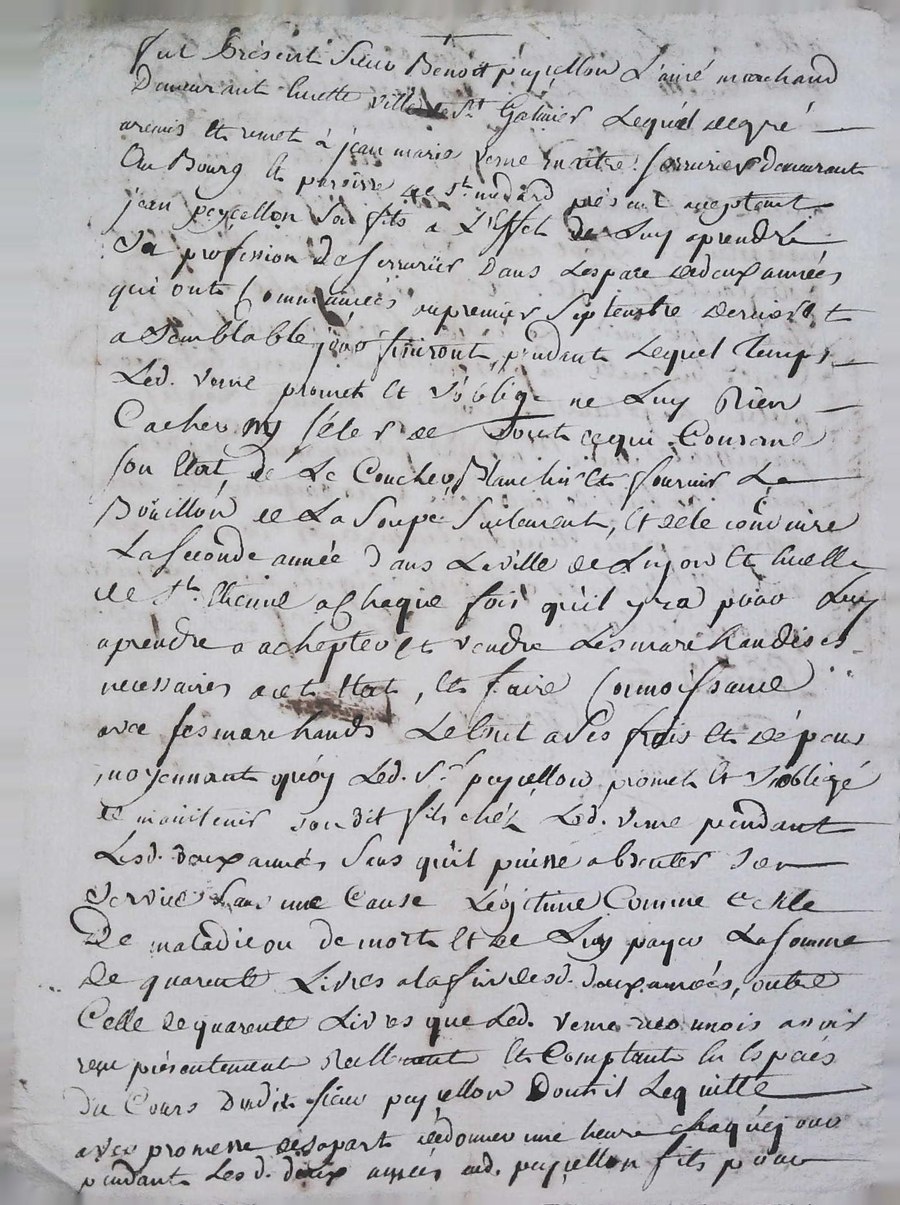 fut présent sieur Benoit peycellon L'ainé marchand
Demeurant en cette ville de St Galmier Lequel de gré
a remis et remet à jean marie verne maitre serrurier demeurant
Au Bourg et paroisse de St medard présent acceptant
jean peycellon son fils a L'Effet de Luy aprendre
Sa profession de serrurier Dans Lespace de deux années
qui ont Commancées au premier Septembre dernier et
a Semblable jour finiront, pendant Lequel temps
Led. verne promet et s'oblige ne Luy Rien
Cacher ny séler de Tout ce qui Conserne
son Etat, de Le Coucher, Blanchir et fournir Le
Boüillon, et La Soupe Seulement, et de le conduire
La seconde année Dans La ville de Lyon et en celle
de St Etienne a Chaque fois qu'il y ira pour Luy
aprendre a achepter et vendre Les marchandises
necessaires a cet Etat, et faire Connoissance
avec les marchands Le tout a Ses frais et dépens
moyennant quoy Led. Sr peycellon promet et s'oblige
de maintenir son dit fils chéz Led. verne pendant
Lesd. deux années Sans qu'il puisse absenter Son
Service Sans une Cause Légitime Comme celle
De maladie ou de mort et de Luy payer La somme
De quarente Livres a la fin desd. deux années, outre
Celle de quarente Livres que Led. verne reconnois avoir
reçu présentement Réellement et Comptant En Espèces
du Cours Dudit sieur peycellon Dont il Le quitte
avec promesse de sa part de donner une heure chaque jour
pendant Lesd. deux années aud. peycellon fils pour